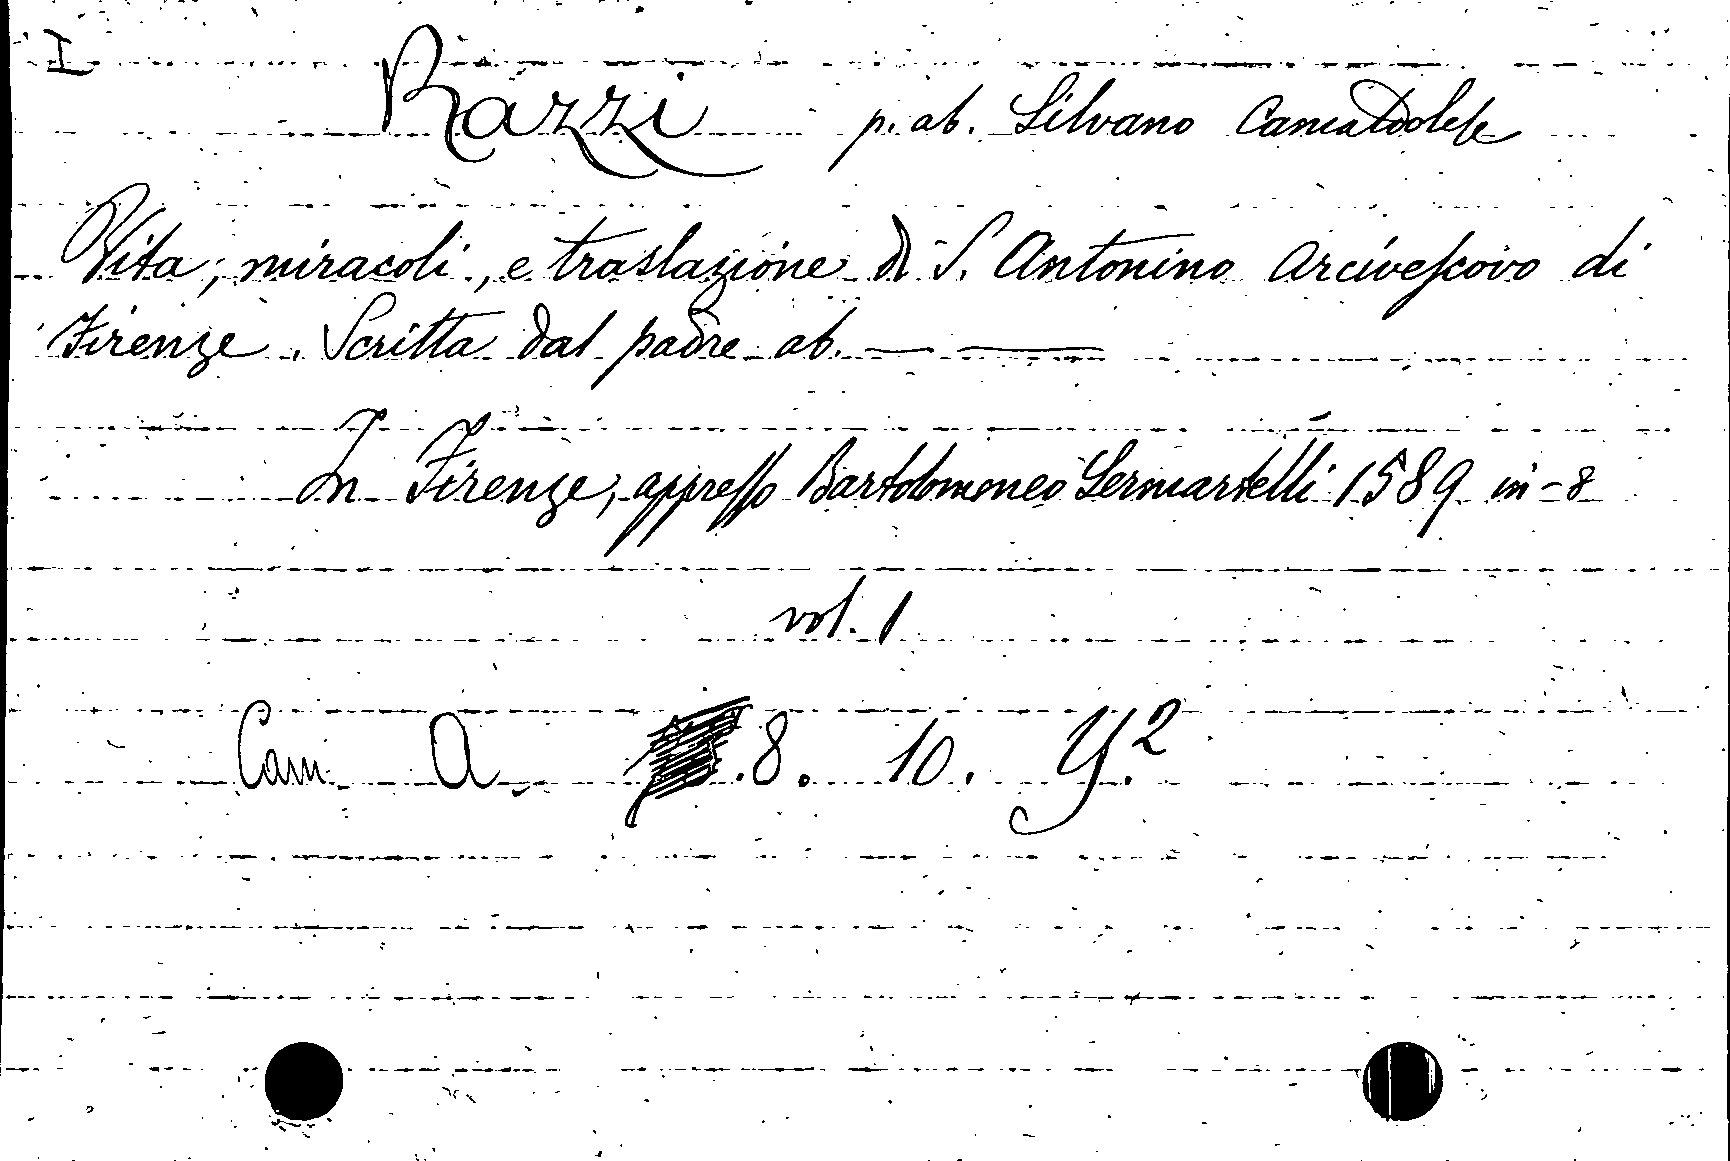 I
Razzi p. ab. Silvano Camaldolese
Vita, miracoli, e traslazione di S. Antonino Arcivescovo di
Firenze. Scritta dal padre ab. — —
In Firenze, appresso Bartolommeo Sermartelli 1589 in-8
vol. 1
Cam. A. .8. 10. Y.2